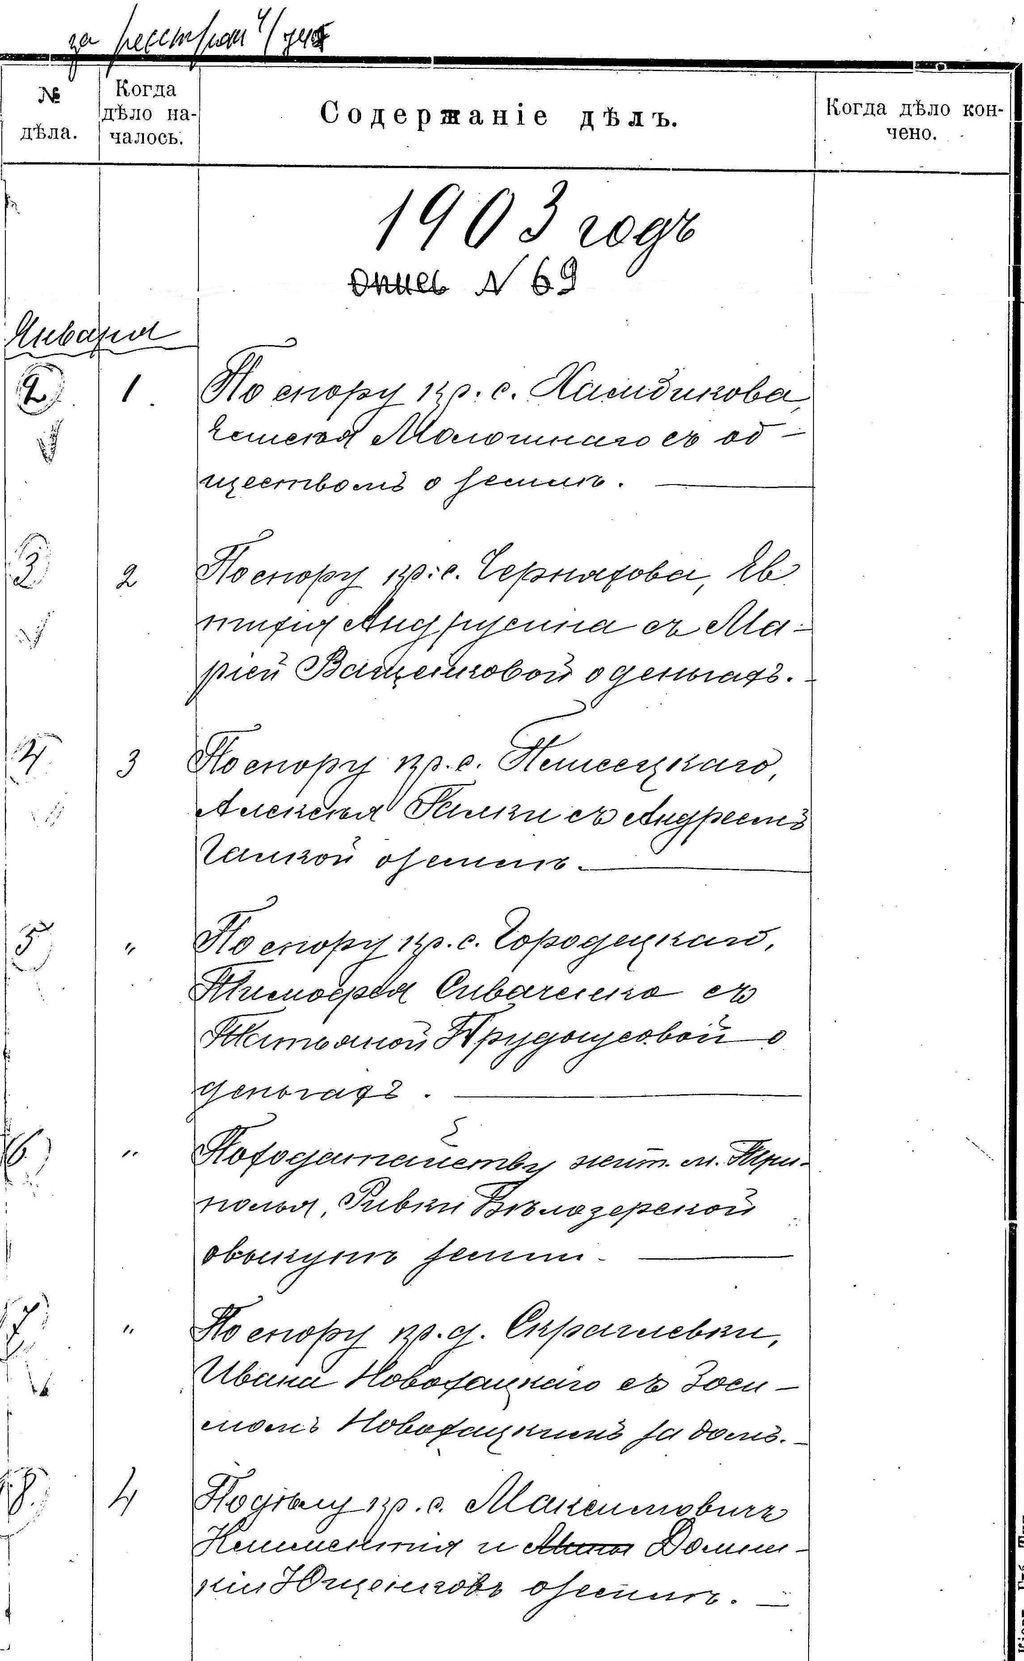 за реестром
№ дѣла.
Когда дѣло на-
чалось.
Содержаніе дѣлъ.
Когда дѣло кон-
чено.
1903 годъ
опись N 69
Января
2 1 По спору кр. с. Халибикова,
Елисея Молошнаго съ об-
ществомъ о землѣ.
3 2 По спору кр. с. Черняхова, Ев
тихія Андрусина съ Ма-
ріей Ващенковой о деньгахъ.
4 3 По спору кр. с.
Алексѣя Галки съ Андреемъ
Галкой о землѣ.
5 " По спору кр. с. Городецкаго,
Тимофея Сиваченко съ
Татьяной Прудоусовой о
деньгахъ.
6 " По ходатайству жит. м. Три-
полья, Ривки Бѣлозерской
о выкупѣ земли.
7 " По спору кр. д. Скраглевки,
Ивана Новохацкаго съ Зоси-
момъ Новохацкимъ за домъ.
8. 4 По дѣлу кр. с. Максимовичъ
Климентія и Домни-
кіи Ющенковъ о землѣ.